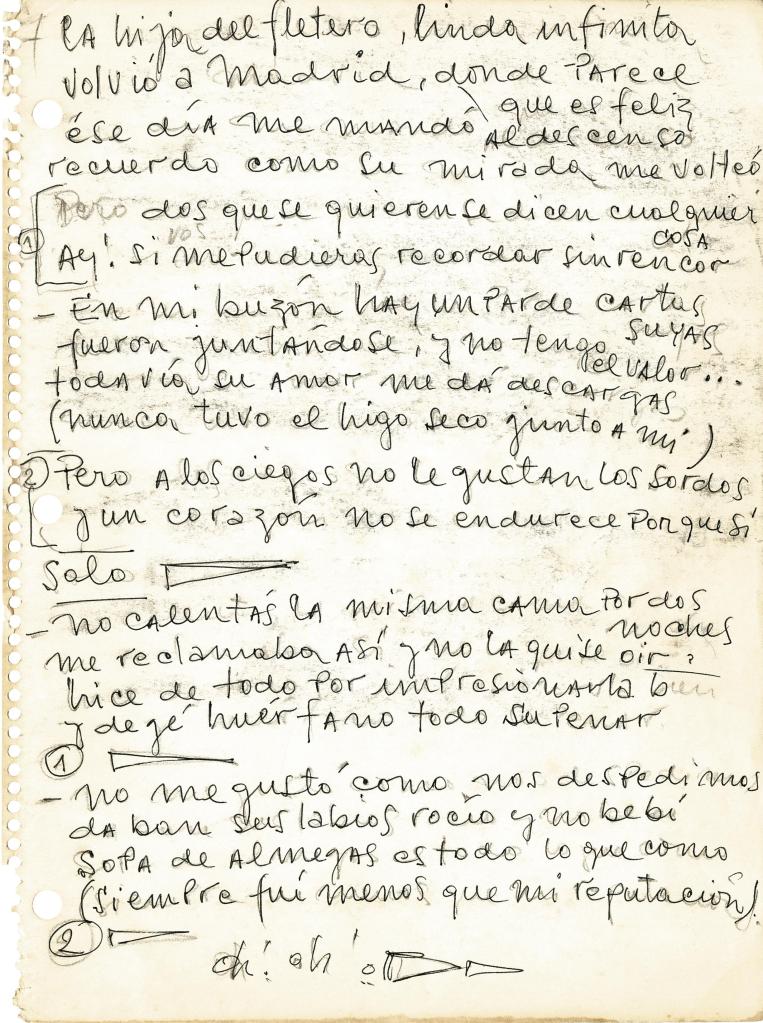 LA hija del fletero, linda infinita
volvió a Madrid, donde PARece
que es feliz
ése día me mandó al descenso
recuerdo como su mirada me volteó
① Pero dos que se quieren se dicen cualquier
cosa
Ay! si vos me pudieras recordar sin rencor
- En mi buzón hay un par de cartas
suyas
fueron juntándose, y no tengo
el valor...
todavía su amor me dá descargas
(nunca tuvo el higo seco junto a mi)
② Pero a los ciegos no le gustan los sordos
y un corazón no se endurece porque sí
Solo
- no calentás la misma cama por dos
noches
me reclamaba así y no la quise oir
hice de todo por impresionarla bien
y dejé huérfano todo su penar
①
- no me gustó como nos despedimos
daban sus labios rocío y no bebí
Sopa de Almejas es todo lo que como
(siempre fuí menos que mi reputación)
②
oh! oh!